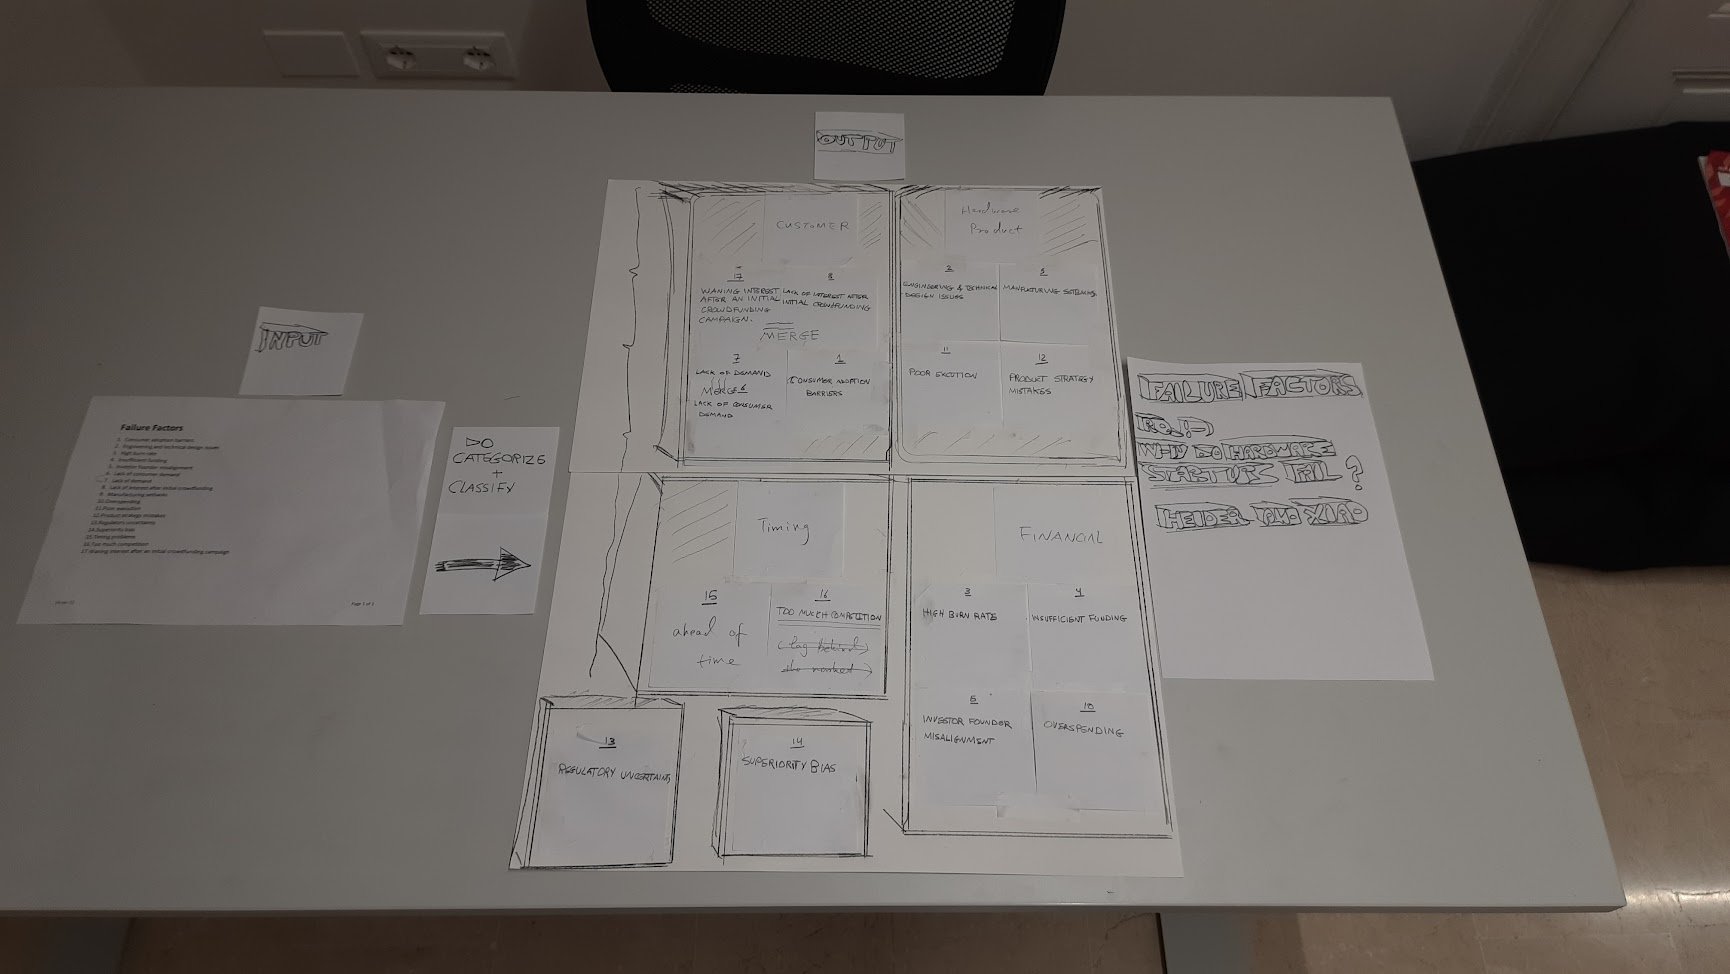 OUTPUT
INPUT
Failure Factors
1. Consumer adoption barriers
2. Engineering and technical design issues
3. High burn rate
4. Insufficient funding
5. Investor founder misalignment
6. Lack of consumer demand
7. Lack of demand
8. Lack of interest after initial crowdfunding
9. Manufacturing setbacks
10. Overspending
11. Poor execution
12. Product strategy mistakes
13. Regulatory uncertainty
14. Superiority bias
15. Timing problems
16. Too much competition
17. Waning interest after an initial crowdfunding campaign
Page 1 of 1
DO
CATEGORIZE
+
CLASSIFY
CUSTOMER
17
WANING INTEREST
AFTER AN INITIAL
CROWDFUNDING
CAMPAIGN.
8
LACK OF INTEREST AFTER
INITIAL CROWDFUNDING
MERGE
7
LACK OF DEMAND
MERGE 6
LACK OF CONSUMER
DEMAND
1
CONSUMER ADOPTION
BARRIERS
Hardware
Product
2
ENGINEERING & TECHNICAL
DESIGN ISSUES
MANFUCTURING SETBACKS
11
POOR EXCUTION
12
PRODUCT STRATEGY
MISTAKES
Timing
15
ahead of
time
16
TOO MUCH COMPETITION
(lag behind
the market)
FINANCIAL
3
HIGH BURN RATE
4
INSUFFICIENT FUNDING
5
INVESTOR FOUNDER
MISALIGNMENT
10
OVERSPENDING
13
REGULATORY UNCERTAINTY
14
SUPERIORITY BIAS
FAILURE FACTORS
RQ!-)
WHY DO HARDWARE
STARTUPS FAIL ?
HEIDER AND XIAO